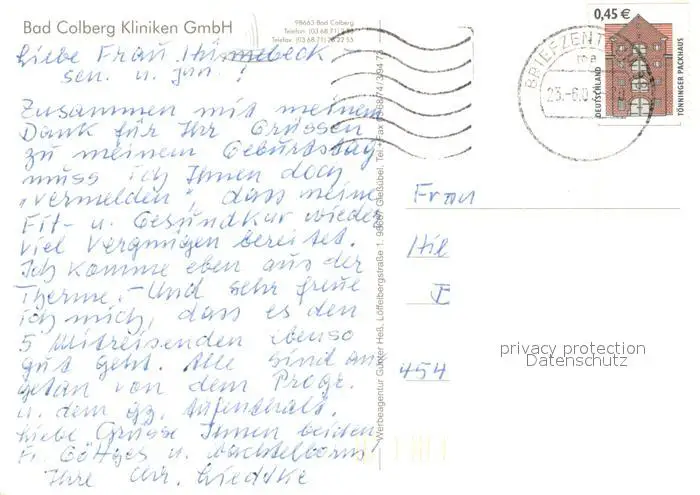 Bad Colberg Kliniken GmbH
98663 Bad Colberg
Telefon (03 68 71)
Telefax (03 68 71) 22 55
Liebe Frau
sen. u. jun.!
Zusammen mit meinem
Dank für Ihr Grüssen
zu meinem Geburtstag
muss ich Ihnen doch
"vermelden", dass meine
Fit- u. Gesundkur wieder
viel Vergnügen bereitet.
Ich komme eben aus der
Therme. - Und sehr freue
ich mich, dass es den
5 Mitreisenden ebenso
gut geht. Alle sind an-
getan von dem Progr.
u. dem gz. Aufenthalt.
Liebe Grüsse Ihnen beiden
Fr. Göttges u.
Ihre Chr.
Werbeagentur Günter Heß, Löffelbergstraße 1, 98667 Gießübel, Tel.+Fax
BRIEFZENTRUM
23.-6.0
0,45 €
DEUTSCHLAND
TÖNNINGER PACKHAUS
Frau
Hil
454
privacy protection
Datenschutz